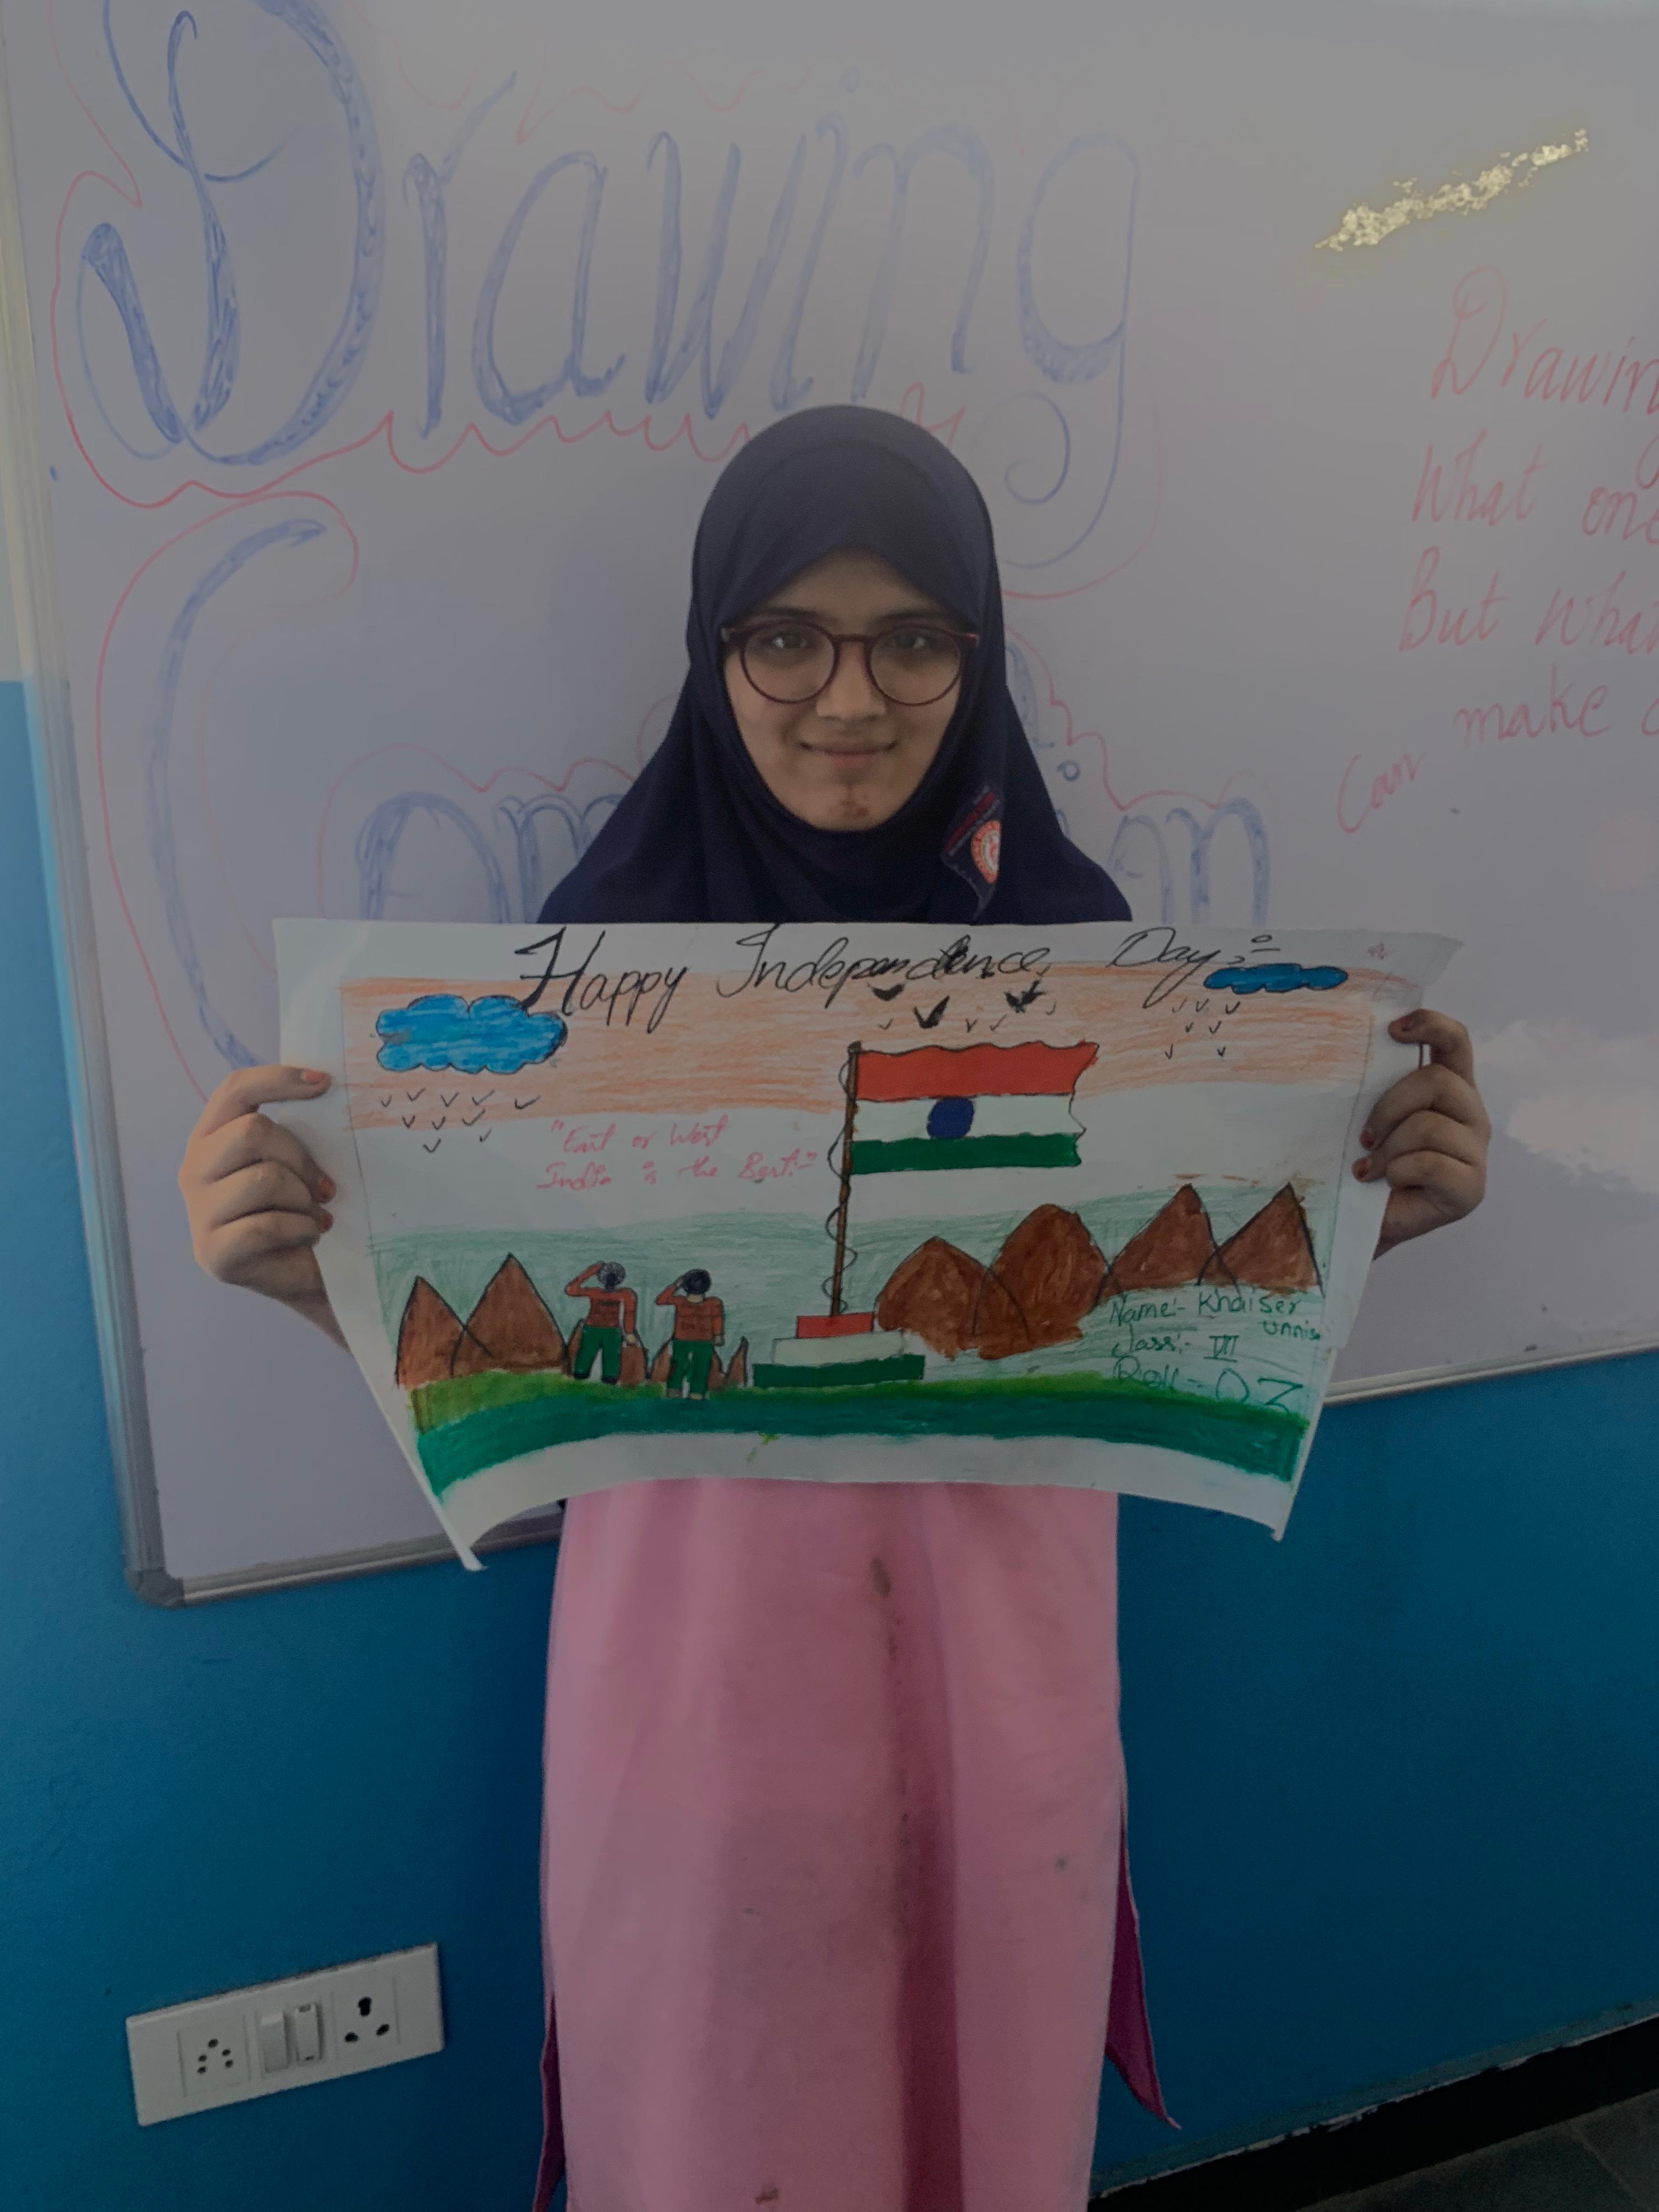 Drawing
Drawin
What one
But what
make
Can
Happy Independence Day:-
"East or West
India is the Best:-"
Name:- Khaiser
unnisa
Class:- VII
Roll:- 03